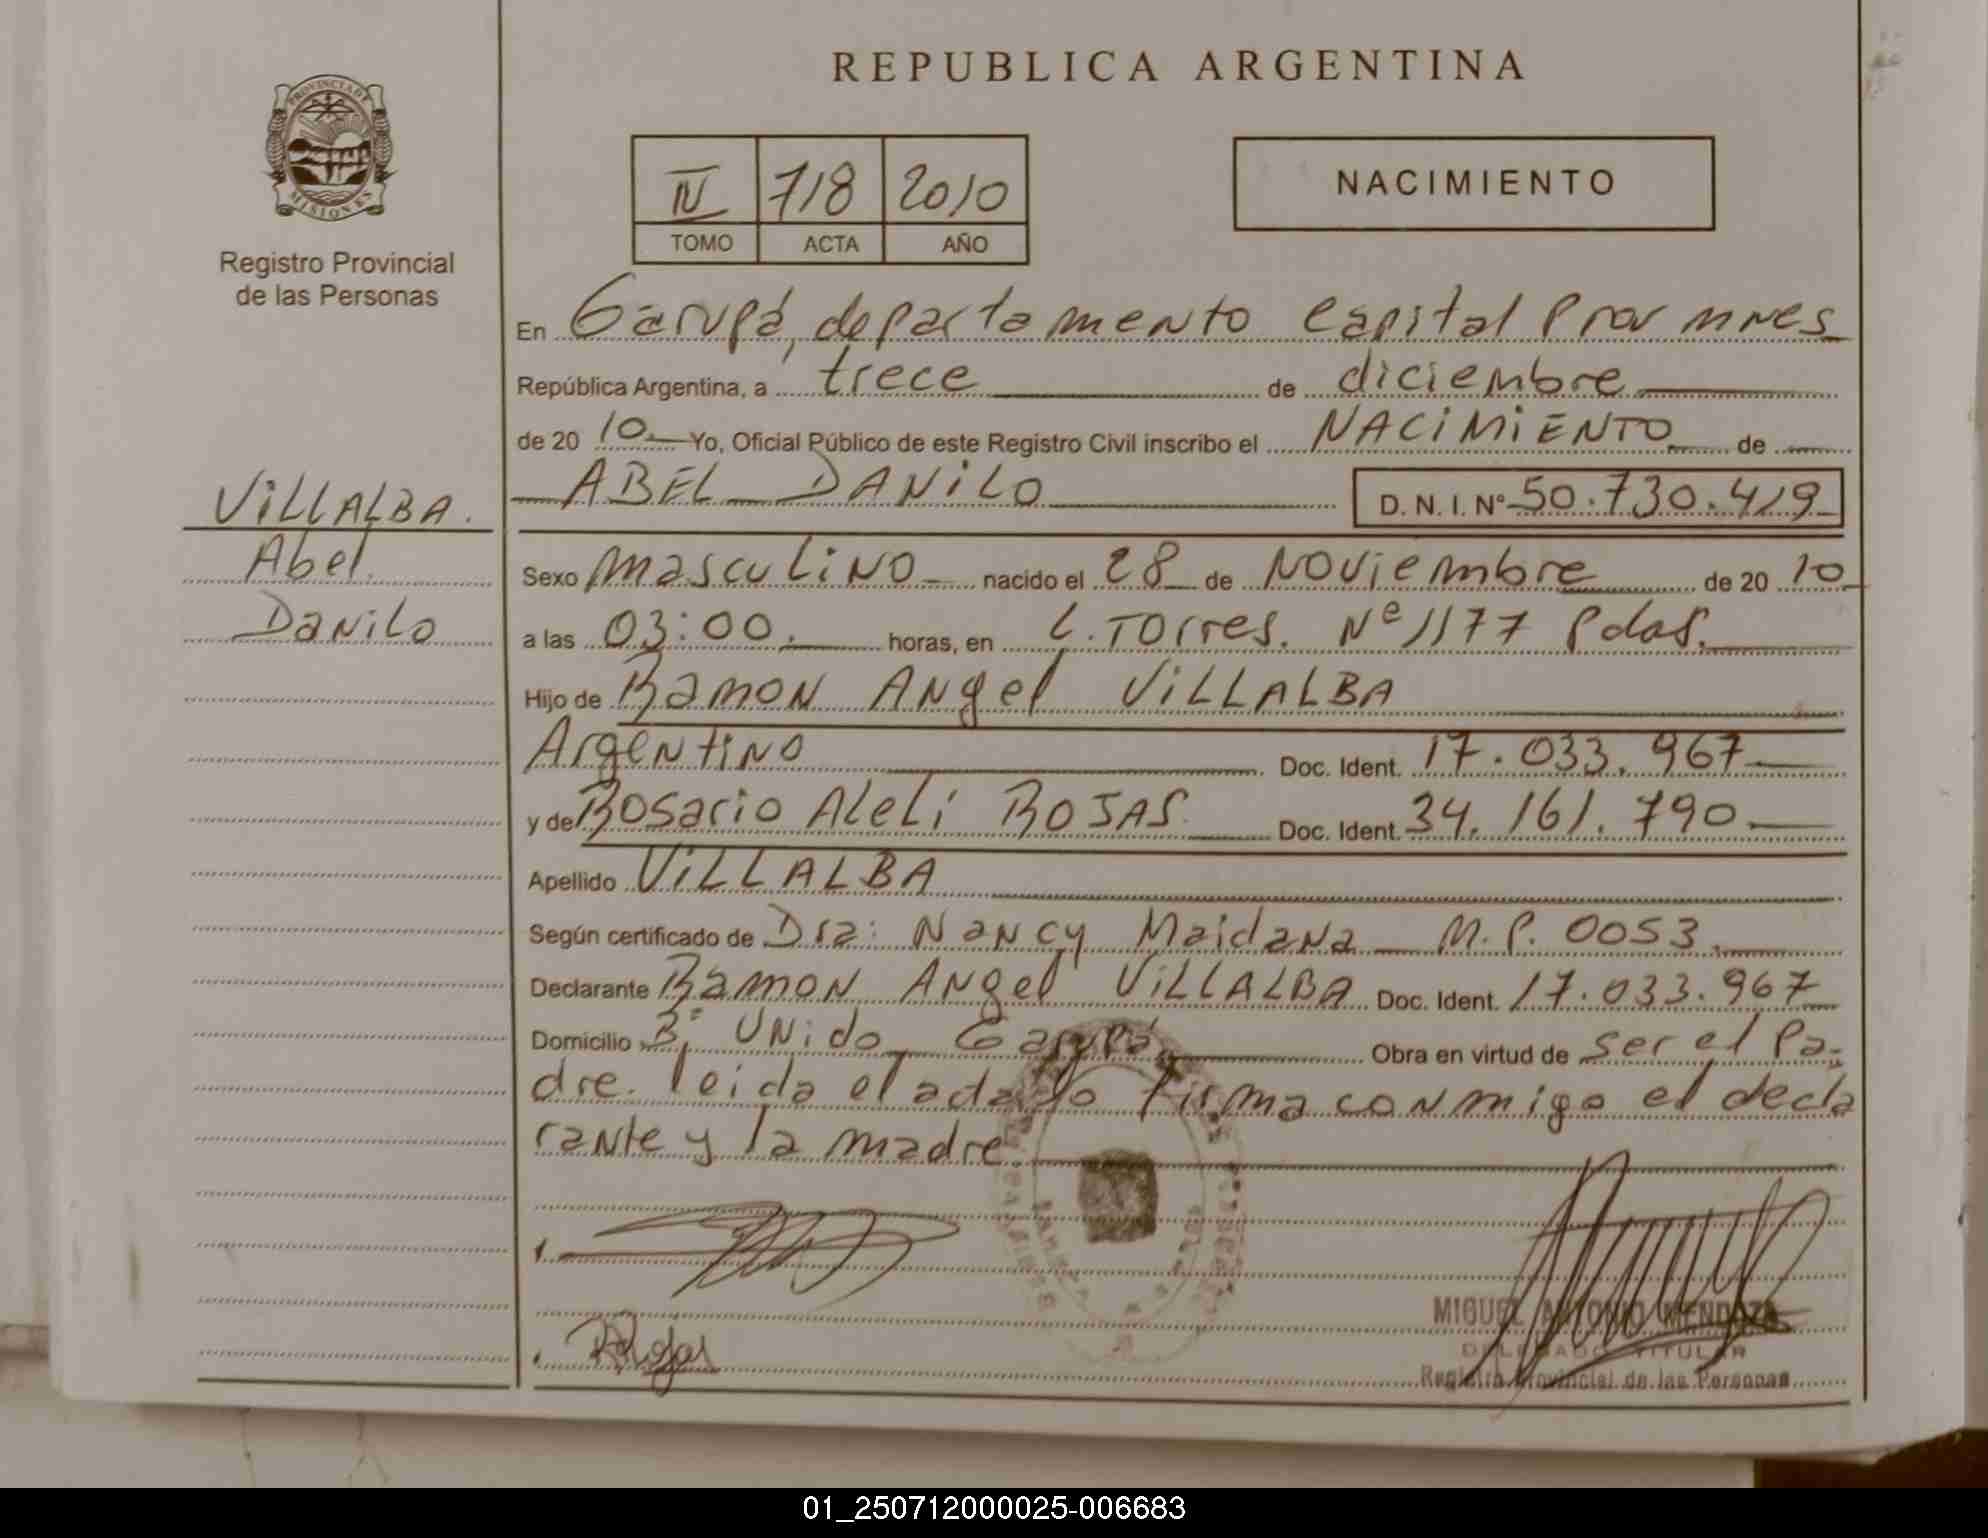 REPUBLICA ARGENTINA
PROVINCIA DE
MISIONES
Registro Provincial
de las Personas
IV 718 2010
TOMO ACTA AÑO
NACIMIENTO
En Garupá, departamento Capital Prov Mnes
República Argentina, a trece de diciembre
de 20 10 Yo, Oficial Público de este Registro Civil inscribo el NACIMIENTO de
ABEL DANILO D. N. I. Nº 50.730.419
VILLALBA.
Abel
Danilo
Sexo masculino nacido el 28 de Noviembre de 20 10
a las 03:00. horas, en L. Torres. Nº 1177 Pdas.
Hijo de Ramon Angel VILLALBA
Argentino Doc. Ident. 17.033.967
y de Rosario Aleli ROJAS Doc. Ident. 34.161.790
Apellido VILLALBA
Según certificado de Dra: Nancy Maidana M.P. 0053.
Declarante Ramon Angel VILLALBA Doc. Ident. 17.033.967
Domicilio Bº Unido Garupá Obra en virtud de ser el Pa-
dre. leida el acta lo firma conmigo el decla
rante y la madre.
MIGUEL ANTONIO MENDOZA
DELEGADO TITULAR
Registro Provincial de las Personas
01_250712000025-006683